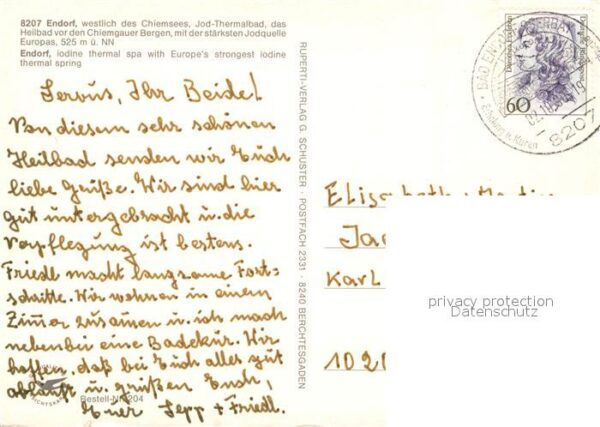 8207 Endorf, westlich des Chiemsees, Jod-Thermalbad, das
Heilbad vor den Chiemgauer Bergen, mit der stärksten Jodquelle
Europas, 525 m ü. NN
Endorf, iodine thermal spa with Europe's strongest iodine
thermal spring
Servus, Ihr Beide!
Von diesem sehr schönen
Heilbad senden wir Euch
liebe Grüße. Wir sind hier
gut untergebracht u. die
Verpflegung ist bestens.
Friedl macht langsame Fort-
schritte. Wir wohnen in einem
Zimmer zusamen u. ich mach
nebenbei eine Badekur. Wir
hoffen, daß bei Euch alles gut
abläuft u. grüßen Euch,
Euer Sepp + Friedl.
Bestell-Nr. 204
RUPERTI-VERLAG G. SCHUSTER · POSTFACH 2331 · 8240 BERCHTESGADEN
60
8207
Elisabeth
Karl
1020
privacy protection
Datenschutz